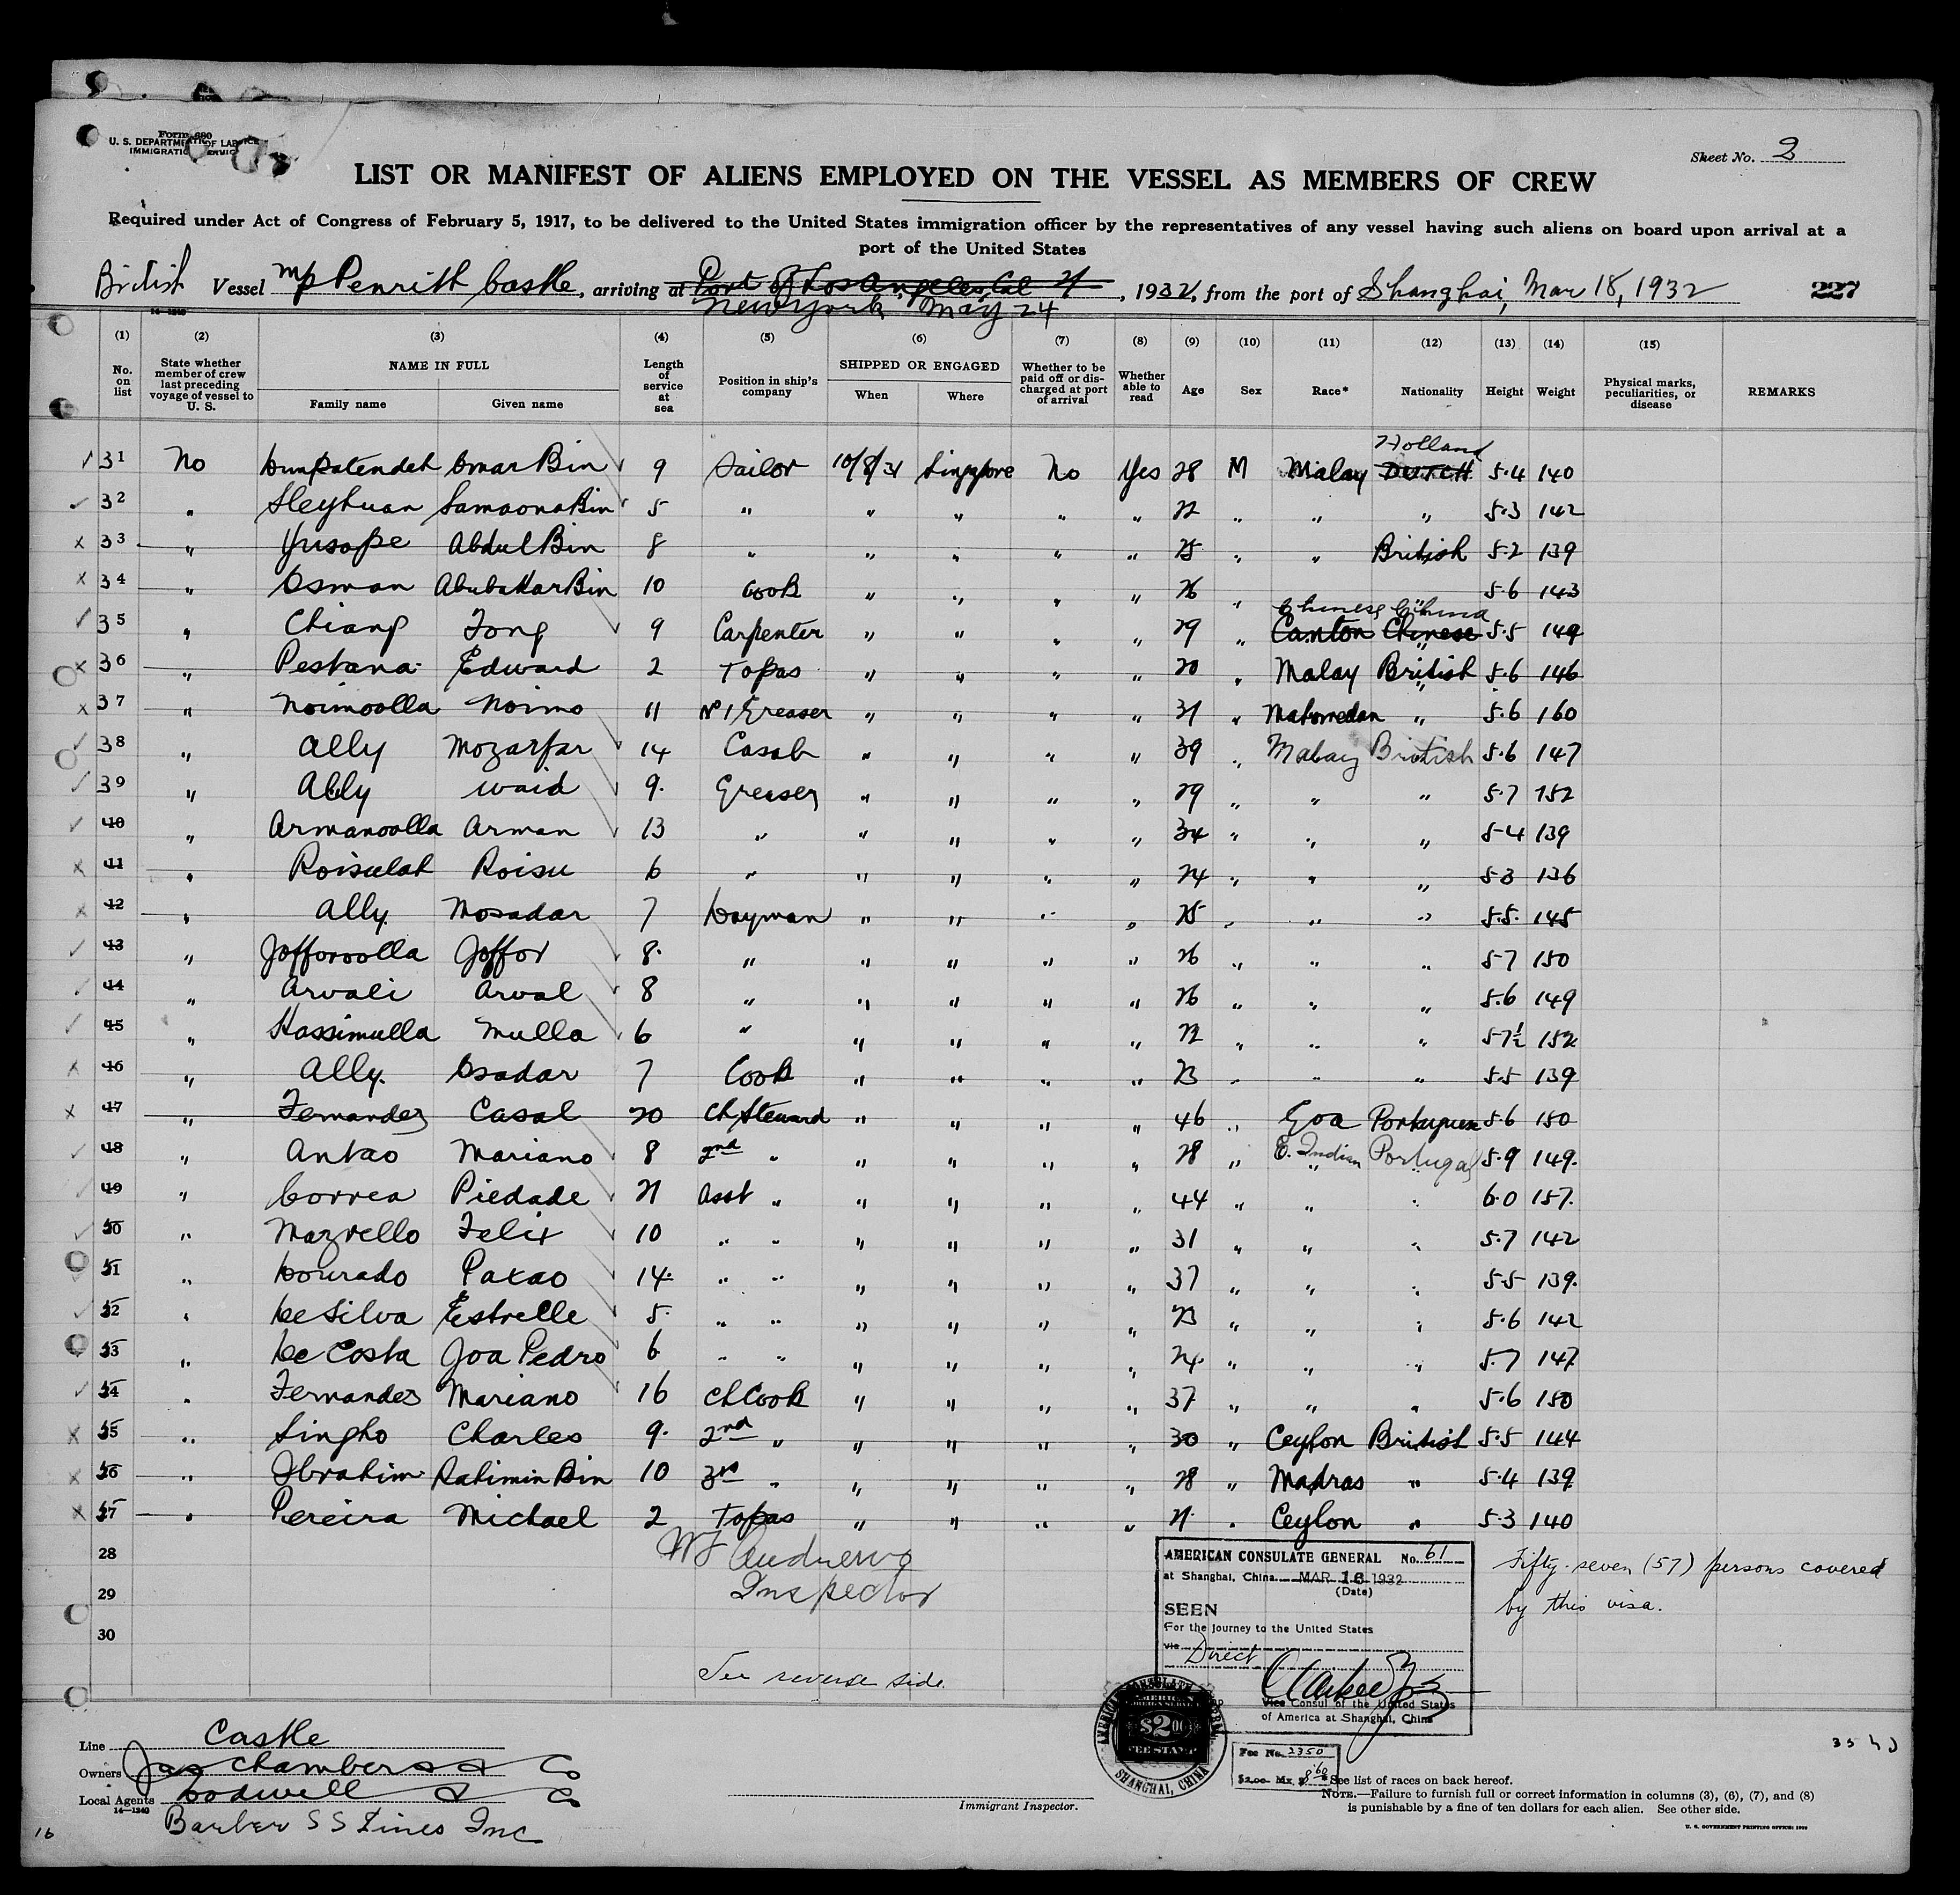 Form 680
U. S. DEPARTMENT OF LABOR
IMMIGRATION SERVICE
Sheet No. 2
LIST OR MANIFEST OF ALIENS EMPLOYED ON THE VESSEL AS MEMBERS OF CREW
Required under Act of Congress of February 5, 1917, to be delivered to the United States immigration officer by the representatives of any vessel having such aliens on board upon arrival at a
port of the United States
British Vessel Penrith Castle, arriving at Port of Los Angeles Cal, 1932, from the port of Shanghai, Mar 18, 1932 227
New York May 24
14-1240
(1) (2) (3) (4) (5) (6) (7) (8) (9) (10) (11) (12) (13) (14) (15)
No. on list State whether member of crew last preceding voyage of vessel to U. S. NAME IN FULL Length of service at sea Position in ship's company SHIPPED OR ENGAGED Whether to be paid off or discharged at port of arrival Whether able to read Age Sex Race* Nationality Height Weight Physical marks, peculiarities, or disease REMARKS
Family name Given name When Where
Holland
31 No Omar Bin 9 Sailor 10/8/31 Singapore No Yes 28 M Malay DUTCH 5.4 140
32 " Sleyhuan Samaona Bin 5 " " " " " 22 " " " 5.3 142
33 " Yusope Abdul Bin 8 " " " " " 25 " " British 5.2 139
34 " Osman Abubakar Bin 10 Cook " " " " 26 " " 5.6 143
Chinese China
35 " Chiang Fong 9 Carpenter " " " " 29 " Canton Chinese 5.5 149
36 " Pestana Edward 2 Topas " " " " 20 " Malay British 5.6 146
37 " Noimoolla Noimo 11 No 1 Greaser " " " " 31 " Mahomedan " 5.6 160
38 " Ally Mozarfar 14 Casab " " " " 39 " Malay British 5.6 147
39 " Ally Waid 9 Greaser " " " " 29 " " " 5.7 152
40 " Armanoolla Arman 13 " " " " " 34 " " " 5.4 139
41 " Roisulat Roisu 6 " " " " " 24 " " " 5.3 136
42 " Ally Mosadar 7 Dayman " " " " 25 " " " 5.5 145
43 " Jofforoolla Joffor 8 " " " " " 26 " " " 5.7 150
44 " Arvali Arval 8 " " " " " 26 " " " 5.6 149
45 " Hassimulla Mulla 6 " " " " " 22 " " " 5.7½ 152
46 " Ally Osadar 7 Cook " " " " 23 " " " 5.5 139
47 " Fernandez Casal 20 Ch Steward " " " " 46 " Goa Portuguese 5.6 150
48 " Antao Mariano 8 2nd " " " " " 28 " E. Indian Portugal 5.9 149
49 " Correa Piedade 21 Asst " " " " " 44 " " " 6.0 157
50 " Mazrello Felix 10 " " " " " " 31 " " " 5.7 142
51 " Dourado Paxao 14 " " " " " " 37 " " " 5.5 139
52 " De Silva Estrelle 5 " " " " " " 23 " " " 5.6 142
53 " De Costa Joa Pedro 6 " " " " " " 24 " " " 5.7 147
54 " Fernandes Mariano 16 Ch Cook " " " " 37 " " " 5.6 150
55 " Singho Charles 9 2nd " " " " " 30 " Ceylon British 5.5 144
56 " Ibrahim Rahimin Bin 10 3rd " " " " " 28 " Madras " 5.4 139
57 " Pereira Michael 2 Topas " " " " 21 " Ceylon " 5.3 140
28
29
30
Andrews
Inspector
See reverse side.
AMERICAN CONSULATE GENERAL No. 61
at Shanghai, China MAR 16 1932
(Date)
SEEN
For the journey to the United States
via Direct
Vice Consul of the United States
of America at Shanghai, China
Fifty-seven (57) persons covered
by this visa.
AMERICAN CONSULATE GENERAL
$2.00
FEE STAMP
SHANGHAI, CHINA
Fee No. 2350
$2.00 Mx. $8.60
Line Castle
Owners Jas Chambers & Co
Local Agents Dodwell & Co
14-1240
Barber S S Lines Inc
16
Immigrant Inspector.
*See list of races on back hereof.
NOTE.—Failure to furnish full or correct information in columns (3), (6), (7), and (8)
is punishable by a fine of ten dollars for each alien. See other side.
U. S. GOVERNMENT PRINTING OFFICE: 1929